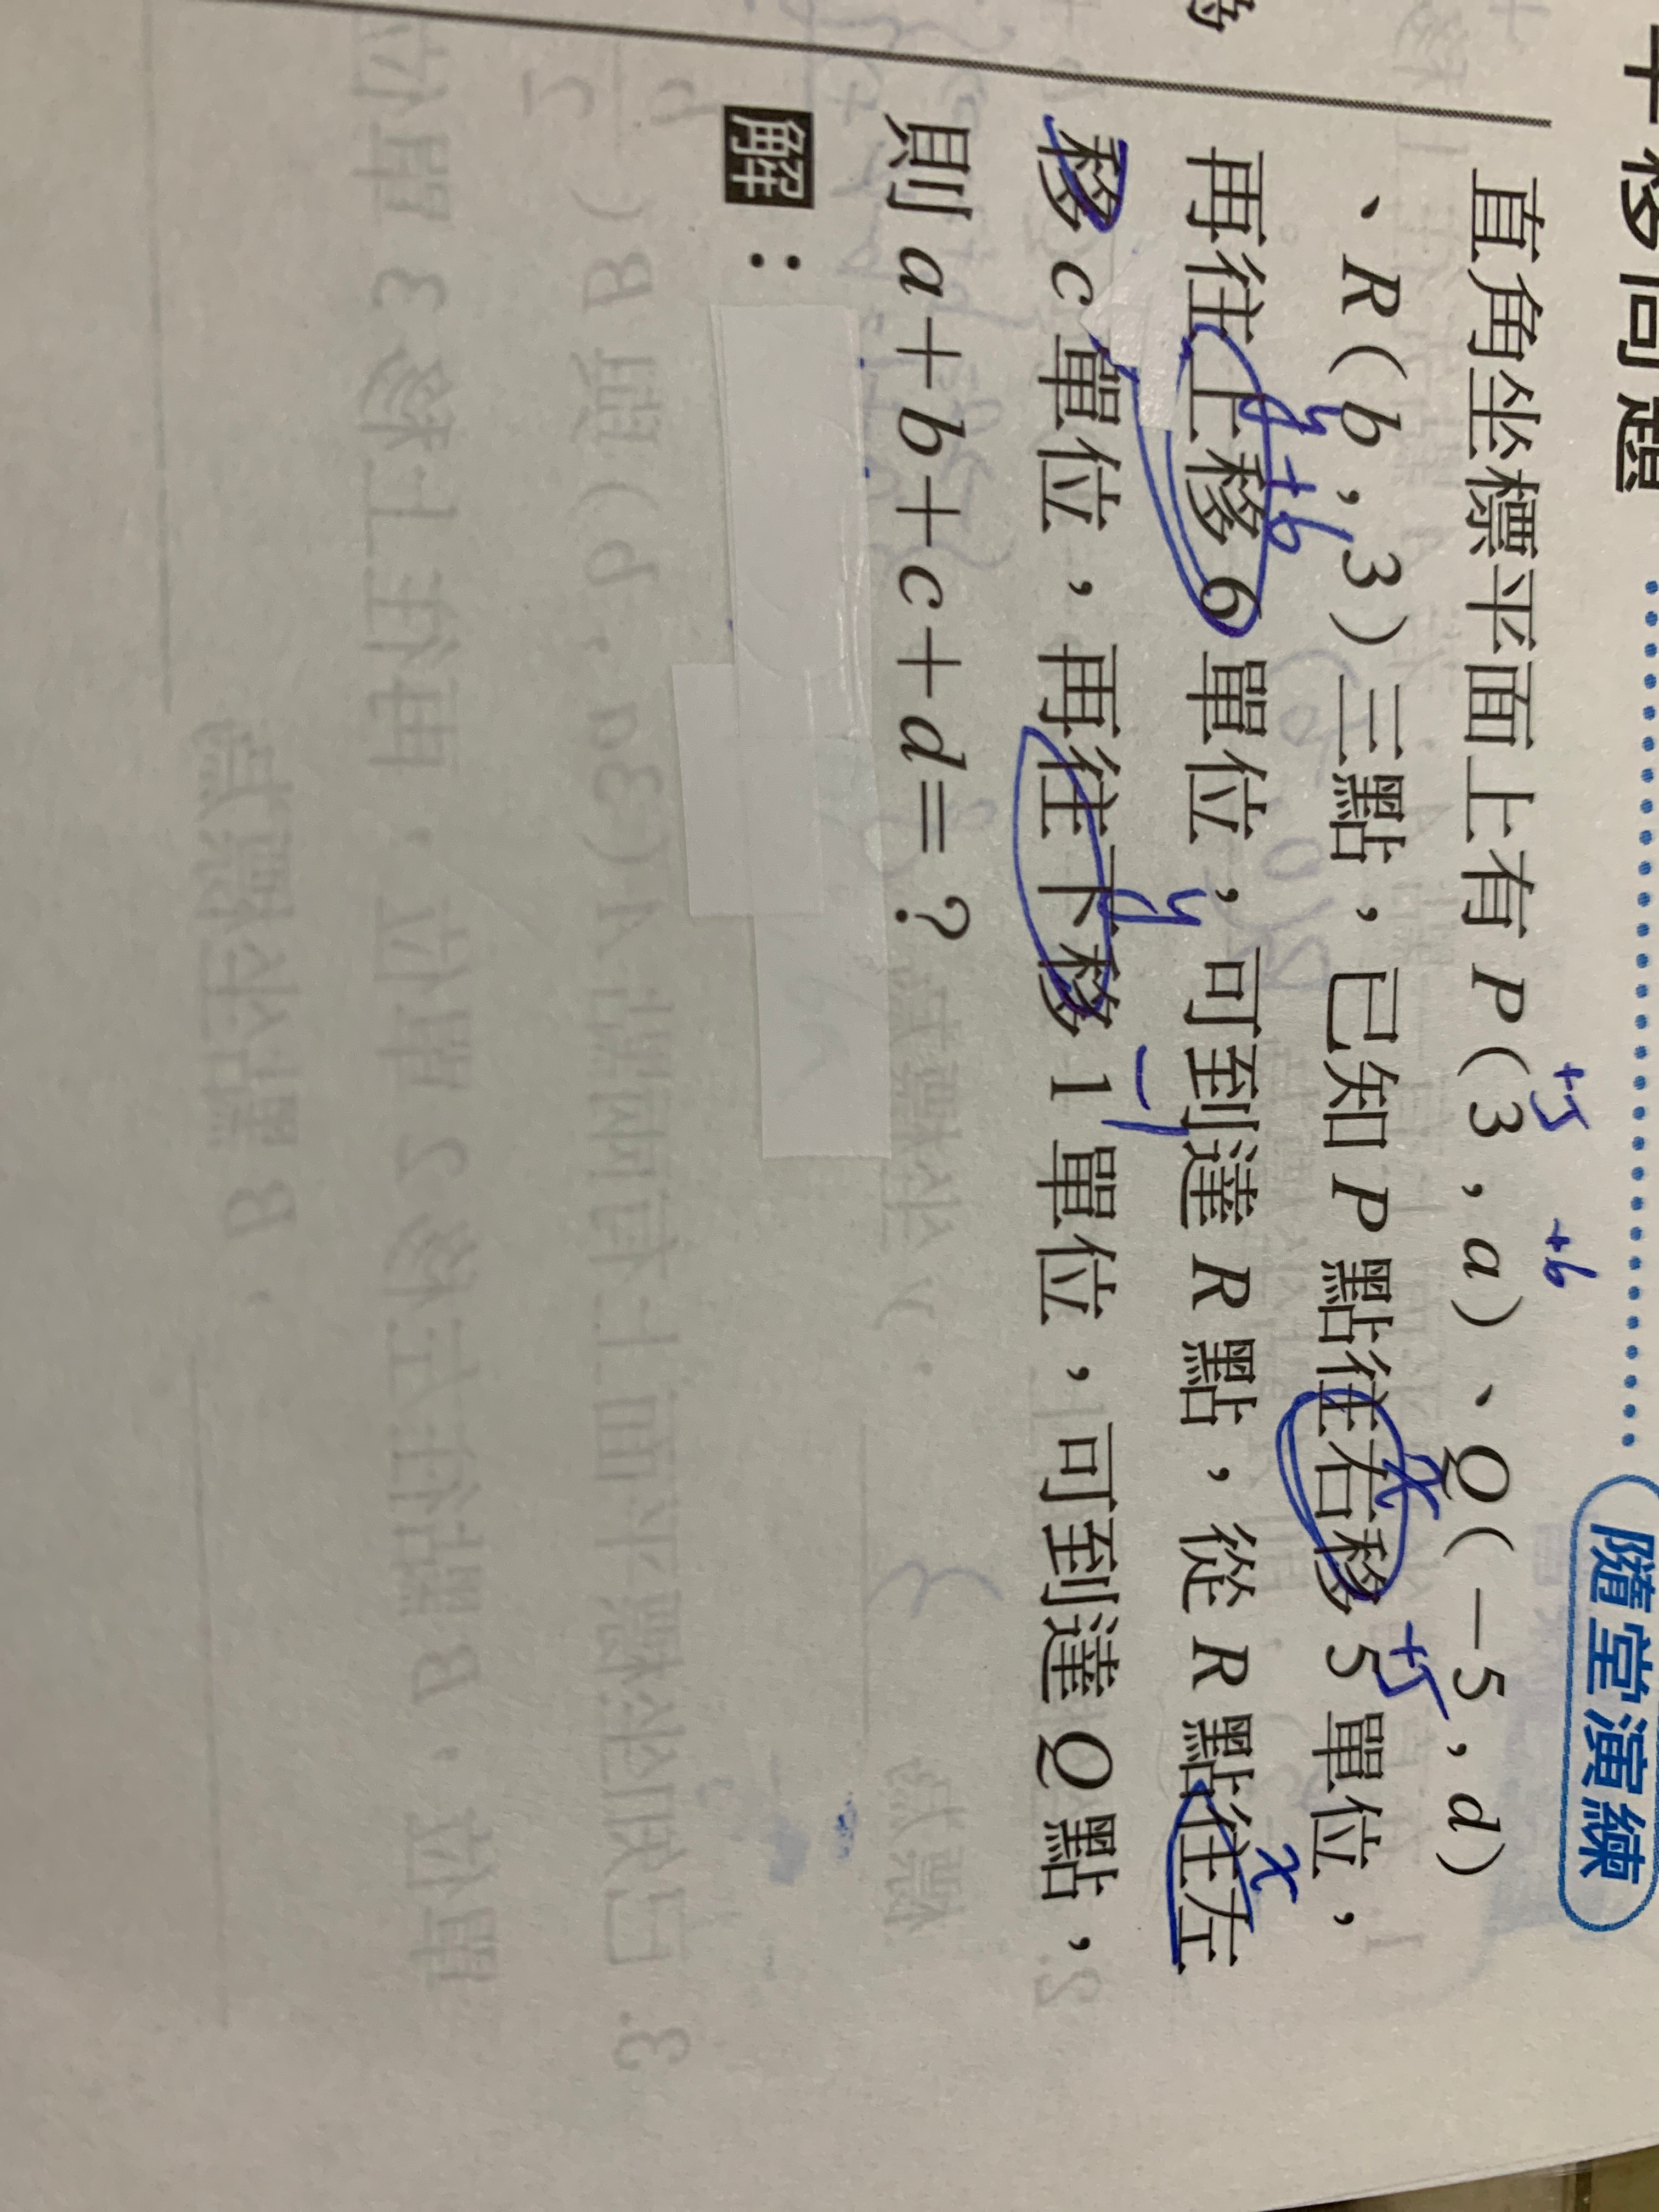 平移問題
隨堂演練
直角坐標平面上有 P(3,a)、Q(-5,d)
+5
+6
、R(b,3)三點,已知P點往右移5單位,
x
+5
再往上移6單位,可到達R點,從R點往左
y+6
x
移c單位,再往下移1單位,可到達Q點,
y
-1
則a+b+c+d=?
解: